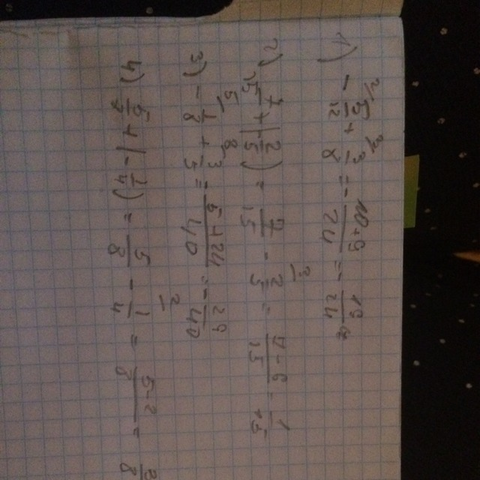 1) - 5/12 + 3/8 = - 10+9/24 = - 19/24
2) 7/15 + (- 2/5) = 7/15 - 2/5 = 7-6/15 = 1/15
3) - 1/8 + 3/5 = - 5+24/40 = - 29/40
4) 5/8 + (- 1/4) = 5/8 - 1/4 = 5-2/8 =